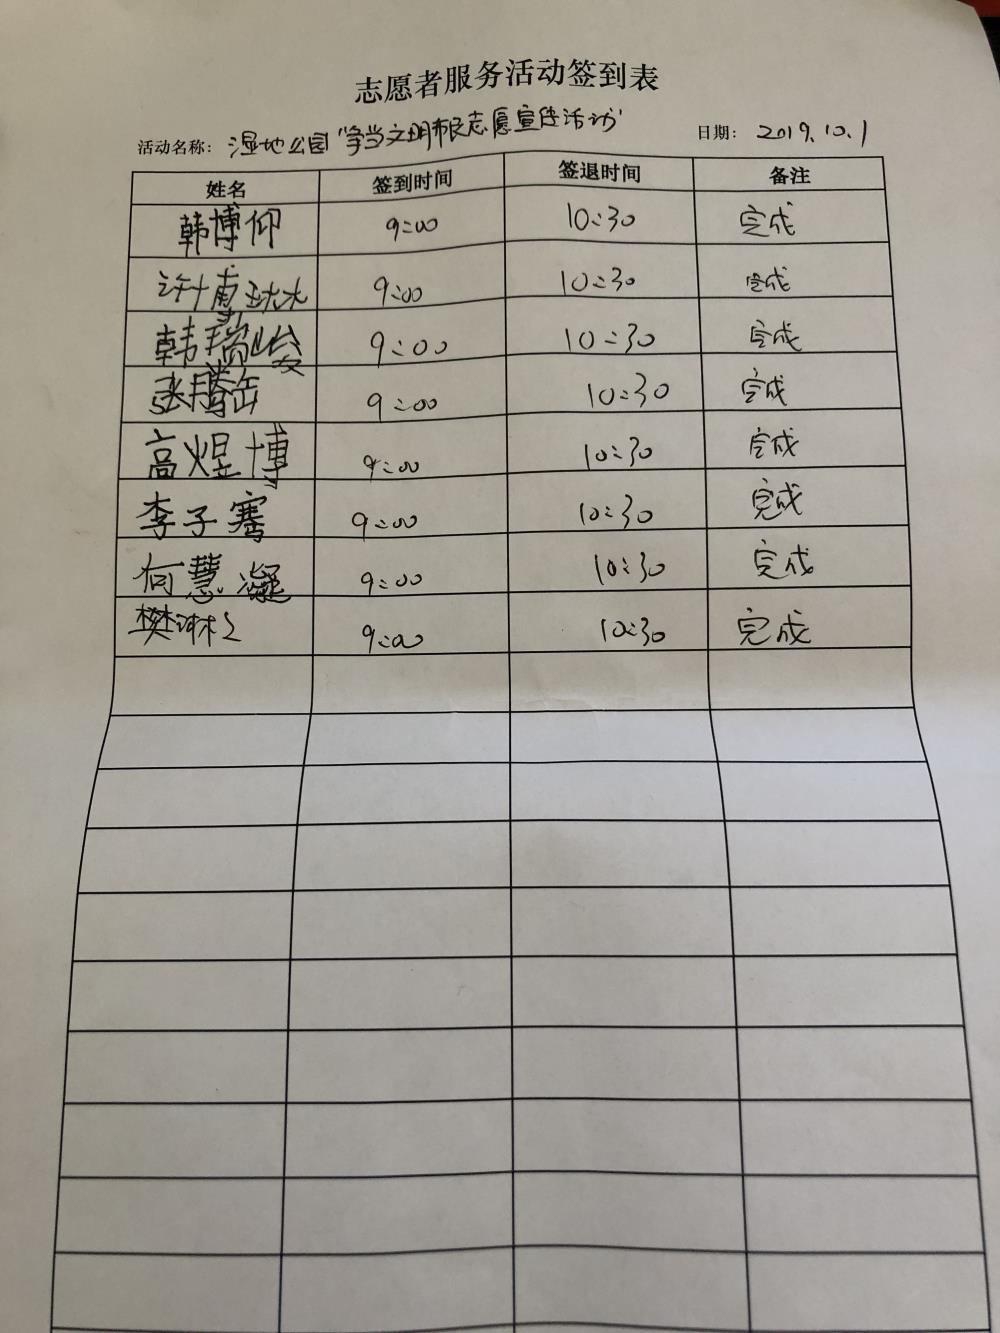 志愿者服务活动签到表
活动名称: 湿地公园"争当文明市民志愿宣传活动" 日期: 2019.10.1
姓名 签到时间 签退时间 备注
韩博仰 9:00 10:30 完成
许 9:00 10:30 完成
韩瑞 9:00 10:30 完成
张腾岳 9:00 10:30 完成
高煜博 9:00 10:30 完成
李子骞 9:00 10:30 完成
何慧凝 9:00 10:30 完成
樊琳 9:00 10:30 完成